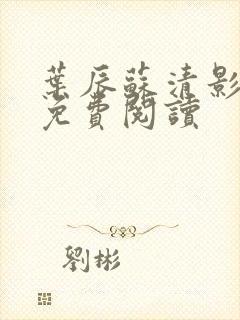 葉辰蘇清影
免費閱讀
劉彬